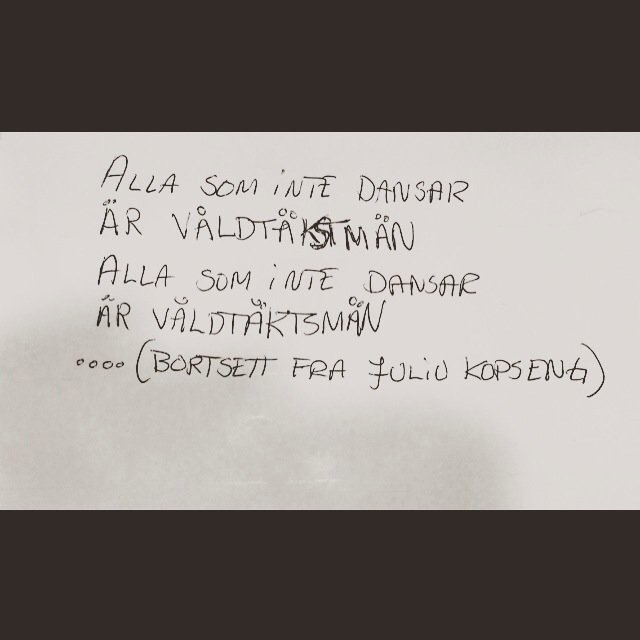 ALLA SOM iNTE DANSAR
ÄR VÅLDTÄKSTMÄN
ALLA SOM iNTE DANSAR
ÄR VÅLDTÄKTSMÄN
.... (BORTSETT FRA JULIO KOPSENG)